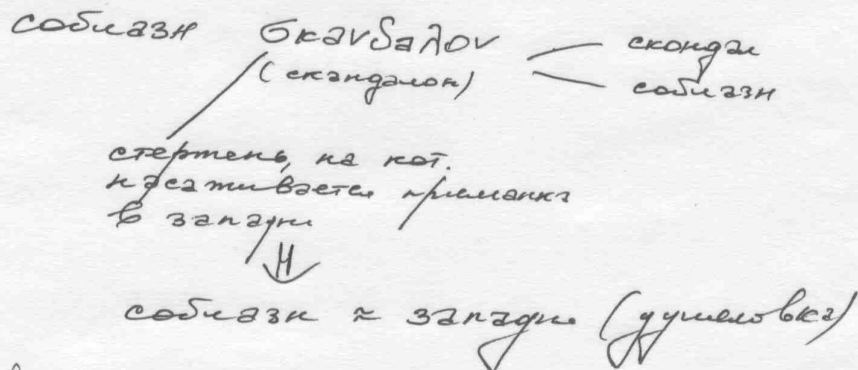 соблазн σκανδαλον — скондал
(скандалон) — соблазн
стержень, на кот.
насаживается приманка
в западне
⇓
соблазн ≈ западня (душеловка)